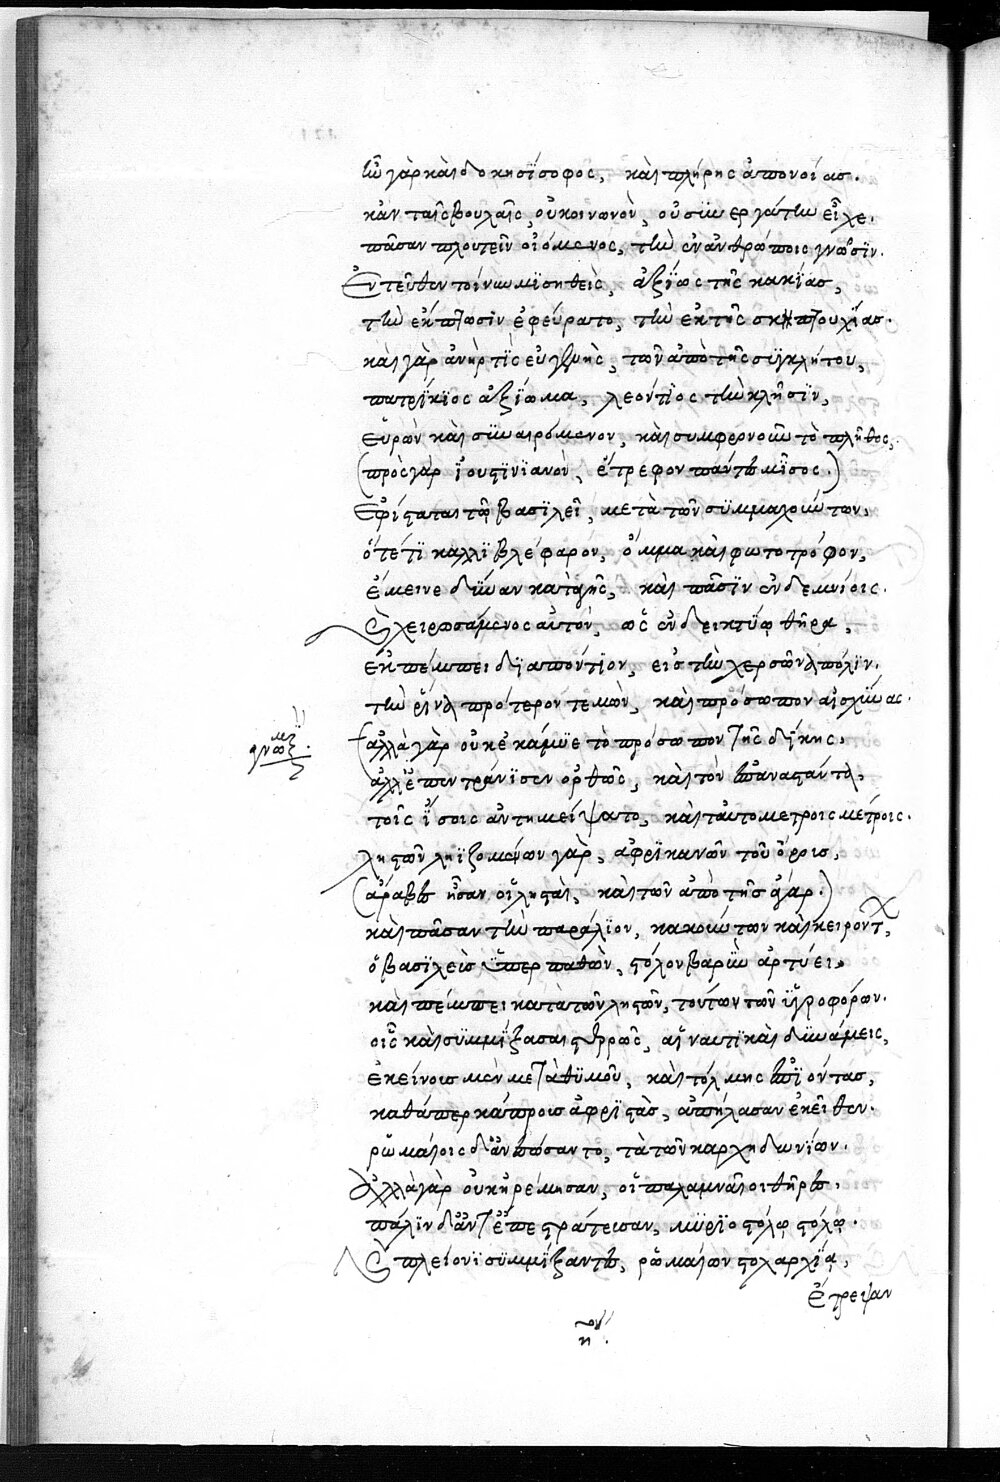 ἦν γὰρ καὶ δοκησίσοφος, καὶ πλήρης ἀπονοίας.
κἀν ταῖς βουλαῖς, οὐ κοινωνὸν, οὐ συνεργάτην εἶχε.
πᾶσαν πλουτεῖν οἰόμενος, τὴν ἐν ἀνθρώποις γνῶσϊν.
Ἐντεῦθεν τοίνυν μϊσηθεὶς, ἀξΐως τῆς κακΐας,
τὴν ἔκπτωσϊν ἐφεύρατο, τὴν ἐκ τῆς σκηπτουχΐας.
καὶ γὰρ ἀνήρ τϊς εὐγενὴς, τῶν ἀπὸ τῆς συγκλήτου,
πατρΐκϊος ἀξΐωμα, λεόντϊος τὴν κλῆσϊν,
εὑρὼν καὶ συναιρόμενον, καὶ συμφερνοῦν τὸ πλῆθος,
(πρὸς γὰρ ἰουστϊνϊανὸν, ἔτρεφον πάντες μῖσος.)
Ἐφίσταται τῷ βασϊλεῖ, μετὰ τῶν συμμαχούντων,
ὅτ' ἔτϊ καλλϊβλέφαρον, ὄμμα καὶ φωτοτρόφον,
ἔμεινε δύναν κατὰ γῆς, καὶ πᾶσϊν ἐν δεμνίοις.
Καὶ χειρωσάμενος αὐτὸν, ὡς ἐν δεικτύῳ θῆρα,
ἐκπέμπει δϊαπόντϊον, εἰς τὴν χερσῶνα πόλϊν.
τὴν ῥῖνα πρότερον τεμὼν, καὶ πρόσωπον αἰσχύνας.
γνωμϊ.
ἀλλὰ γὰρ οὐκ ἔκαμψε τὸ πρόσωπον τῆς δίκης,
ἀλλ' ἐπεντράνϊσεν ὀρθῶς, καὶ τὸν ἐπαναστάντα,
τοῖς ἴσοις ἀντημείψατο, καὶ ταὐτομέτροις μέτροις.
ληστῶν ληϊζομένων γὰρ, ἀφρϊκανῶν τοὺς ὅρϊς,
(ἄραβες ἦσαν οἱ λησταὶ, καὶ τῶν ἀπὸ τῆς ἄγαρ.)
καὶ πᾶσαν τὴν παράλϊον, κακούντων καὶ κειρόντων,
ὁ βασϊλεὺς ὑπερπαθῶν, στόλον βαρὺν ἀρτύει,
καὶ πέμπει κατὰ τῶν ληστῶν, τούτων τῶν ὑγροφόρων.
οἷς καὶ συμμΐξασαι στερρῶς, αἱ ναυτϊκαὶ δυνάμεις,
ἐκείνους μὲν μετὰ θυμοῦ, καὶ τόλμης ἐπϊόντας,
καθάπερ κάπρους ἀφρϊστὰς, ἀπήλασαν ἐκεῖθεν.
ῥωμαίοις δ' ἀνεσώσαντο, τὰ τῶν καρχηδονΐων.
Ἀλλὰ γὰρ οὐκ ἠρέμησαν, οἱ παλαμναῖοι θῆρες,
πάλϊν δ' ἀντεπεστράτευσαν, μυρϊοστόλῳ στόλῳ.
Καὶ πλείονϊ συμμΐξαντες, ῥωμαίων στολαρχΐᾳ,
ἔτρεψαν